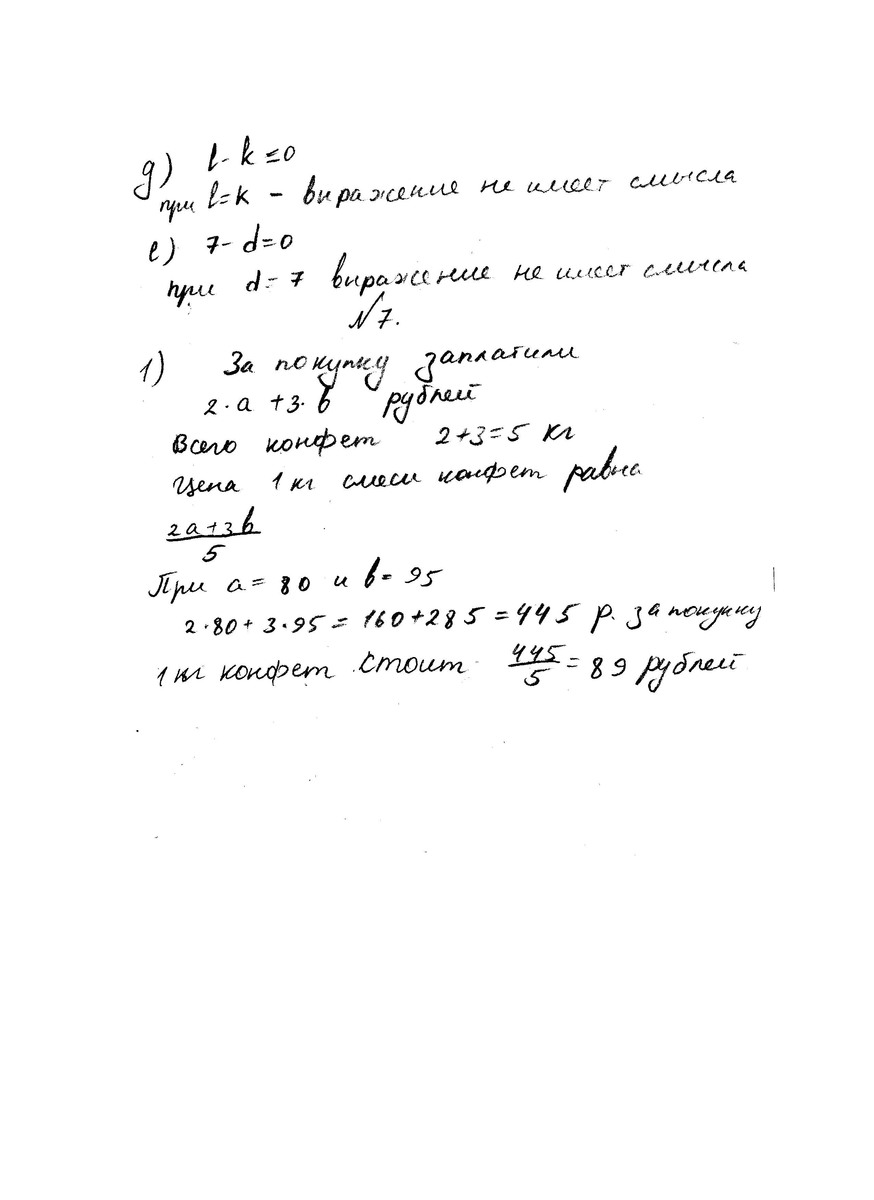 д) l - k = 0
при l = k - выражение не имеет смысла
е) 7 - d = 0
при d = 7 выражение не имеет смысла
№7.
1) За покупку заплатили
2·a + 3·b рублей
Всего конфет 2+3=5 кг
Цена 1 кг смеси конфет равна
2a+3b
5
При a = 80 и b = 95
2·80 + 3·95 = 160+285 = 445 р. за покупку
1 кг конфет стоит 445/5 = 89 рублей